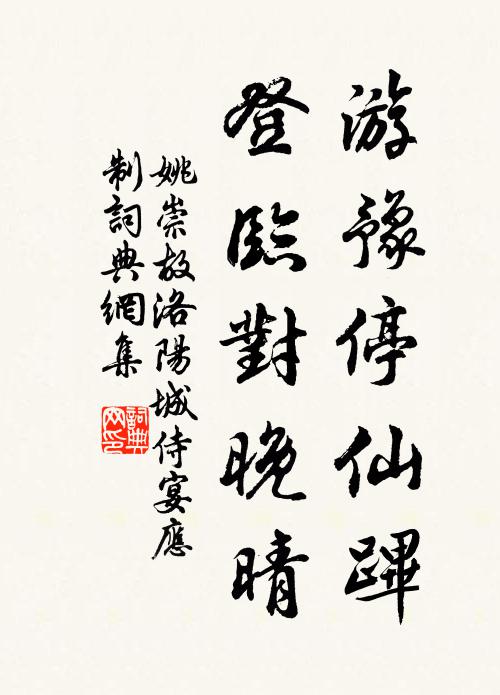 游豫停仙蹕
登臨對晚晴
姚崇故洛陽城侍宴應
制詞典網集
詞典网印